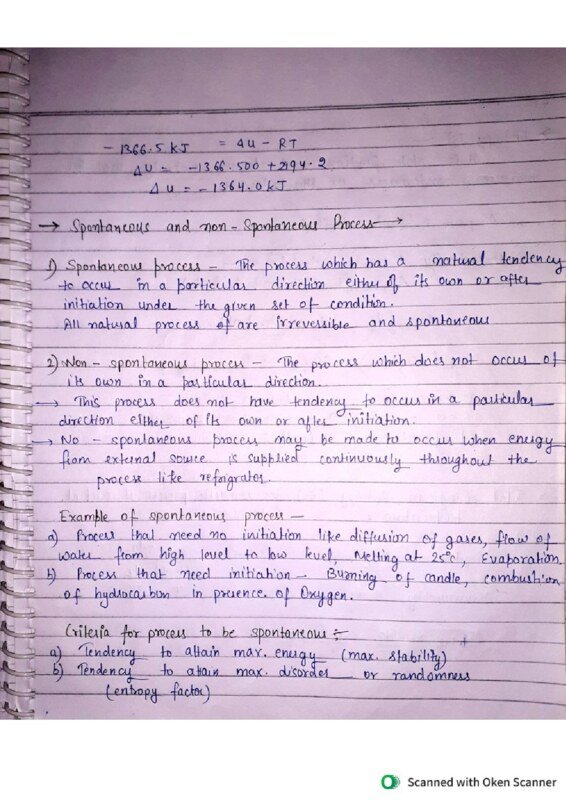 -1366.5 KJ = ΔU - RT
ΔU = -1366.500 + 2194.2
ΔU = -1364.0 KJ
→ Spontaneous and non-Spontaneous Process →
1) Spontaneous process - The process which has a natural tendency
to occur in a particular direction either of its own or after
initiation under the given set of condition.
All natural process of are irreversible and spontaneous
2) Non-spontaneous process - The process which does not occur of
its own in a particular direction.
→ This process does not have tendency to occur in a particular
direction either of its own or after initiation.
→ No-spontaneous process may be made to occur when energy
from external source is supplied continuously throughout the
process like refrigrator.
Example of spontaneous process -
a) Process that need no initiation like diffusion of gases, flow of
water from high level to low level, Melting at 25°C, Evaporation
b) Process that need initiation - Burning of candle, combustion
of hydrocarbon in presence of Oxygen.
Criteria for process to be spontaneous :-
a) Tendency to attain max. energy (max. stability)
b) Tendency to attain max. disorder or randomness
(entropy factor)
Scanned with Oken Scanner